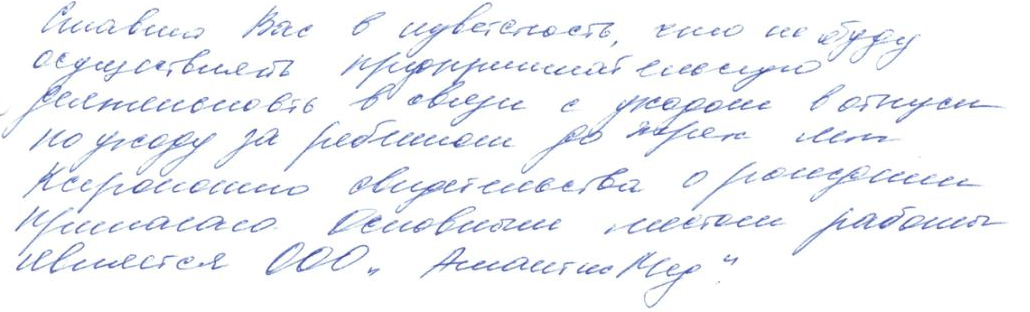 Ставлю Вас в известность, что не буду
осуществлять предпринимательскую
деятельность в связи с уходом в отпуск
по уходу за ребенком до трех лет
Ксерокопию свидетельства о рождении
прилагаю. Основным местом работы
является ООО „АтлантисМед"